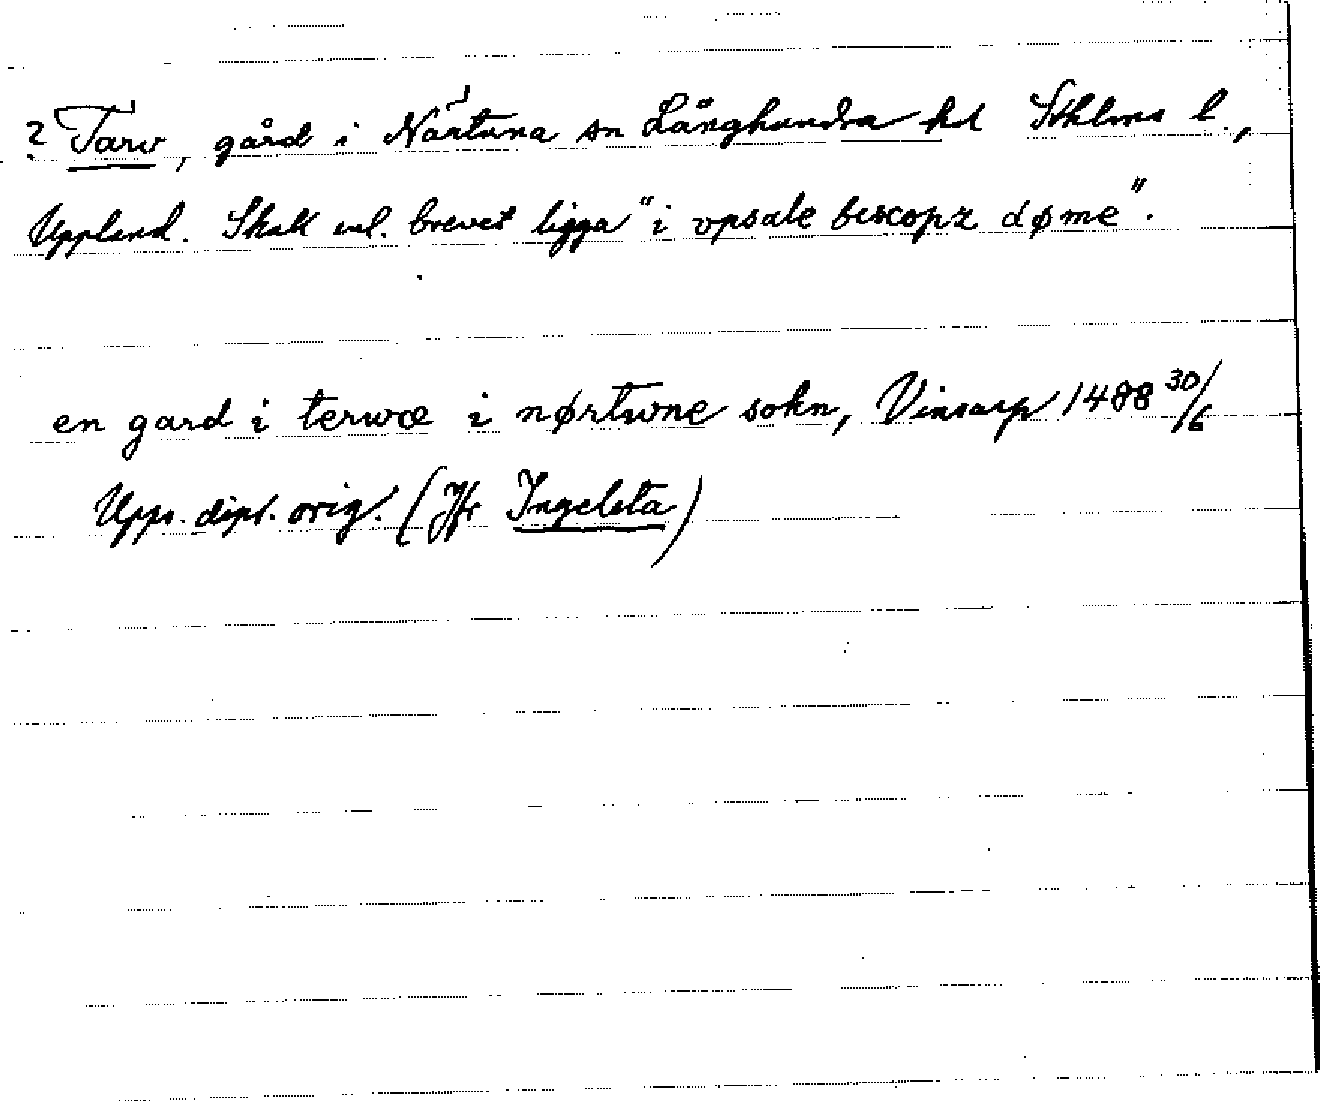 ? Tarv, gård i Närtuna sn Långhundra hd Sthlms l.,
Uppland. Skall enl. brevet ligga "i vpsale bescopz døme".
en gard i terwœ i nørtwne sokn, Vinsarp 1488 30/6
Upps. dipl. orig. (Jfr Ingeleta)